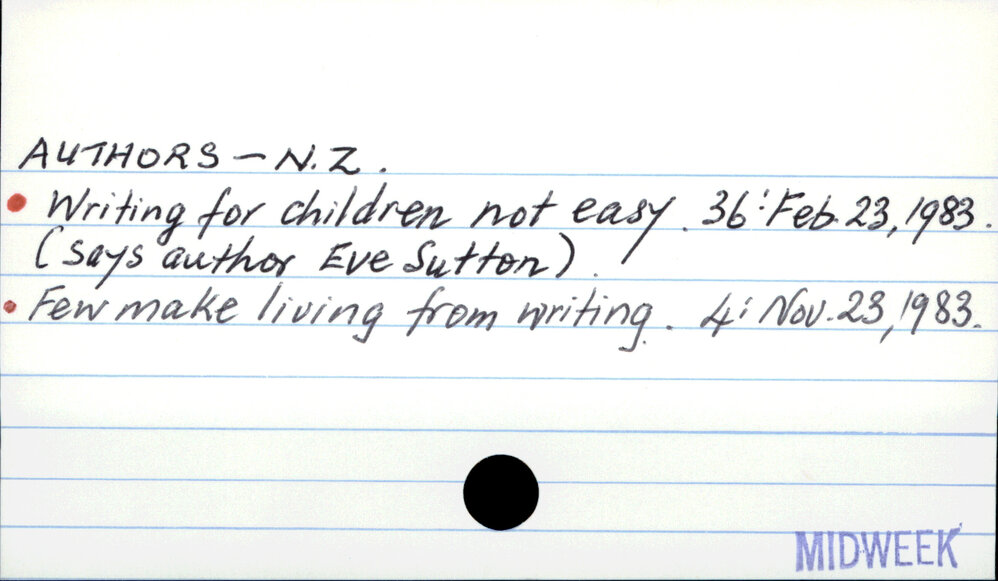 AUTHORS - N.Z.
Writing for children not easy. 36: Feb. 23, 1983.
(says author Eve Sutton).
Few make living from writing. 4: Nov. 23, 1983.
MIDWEEK